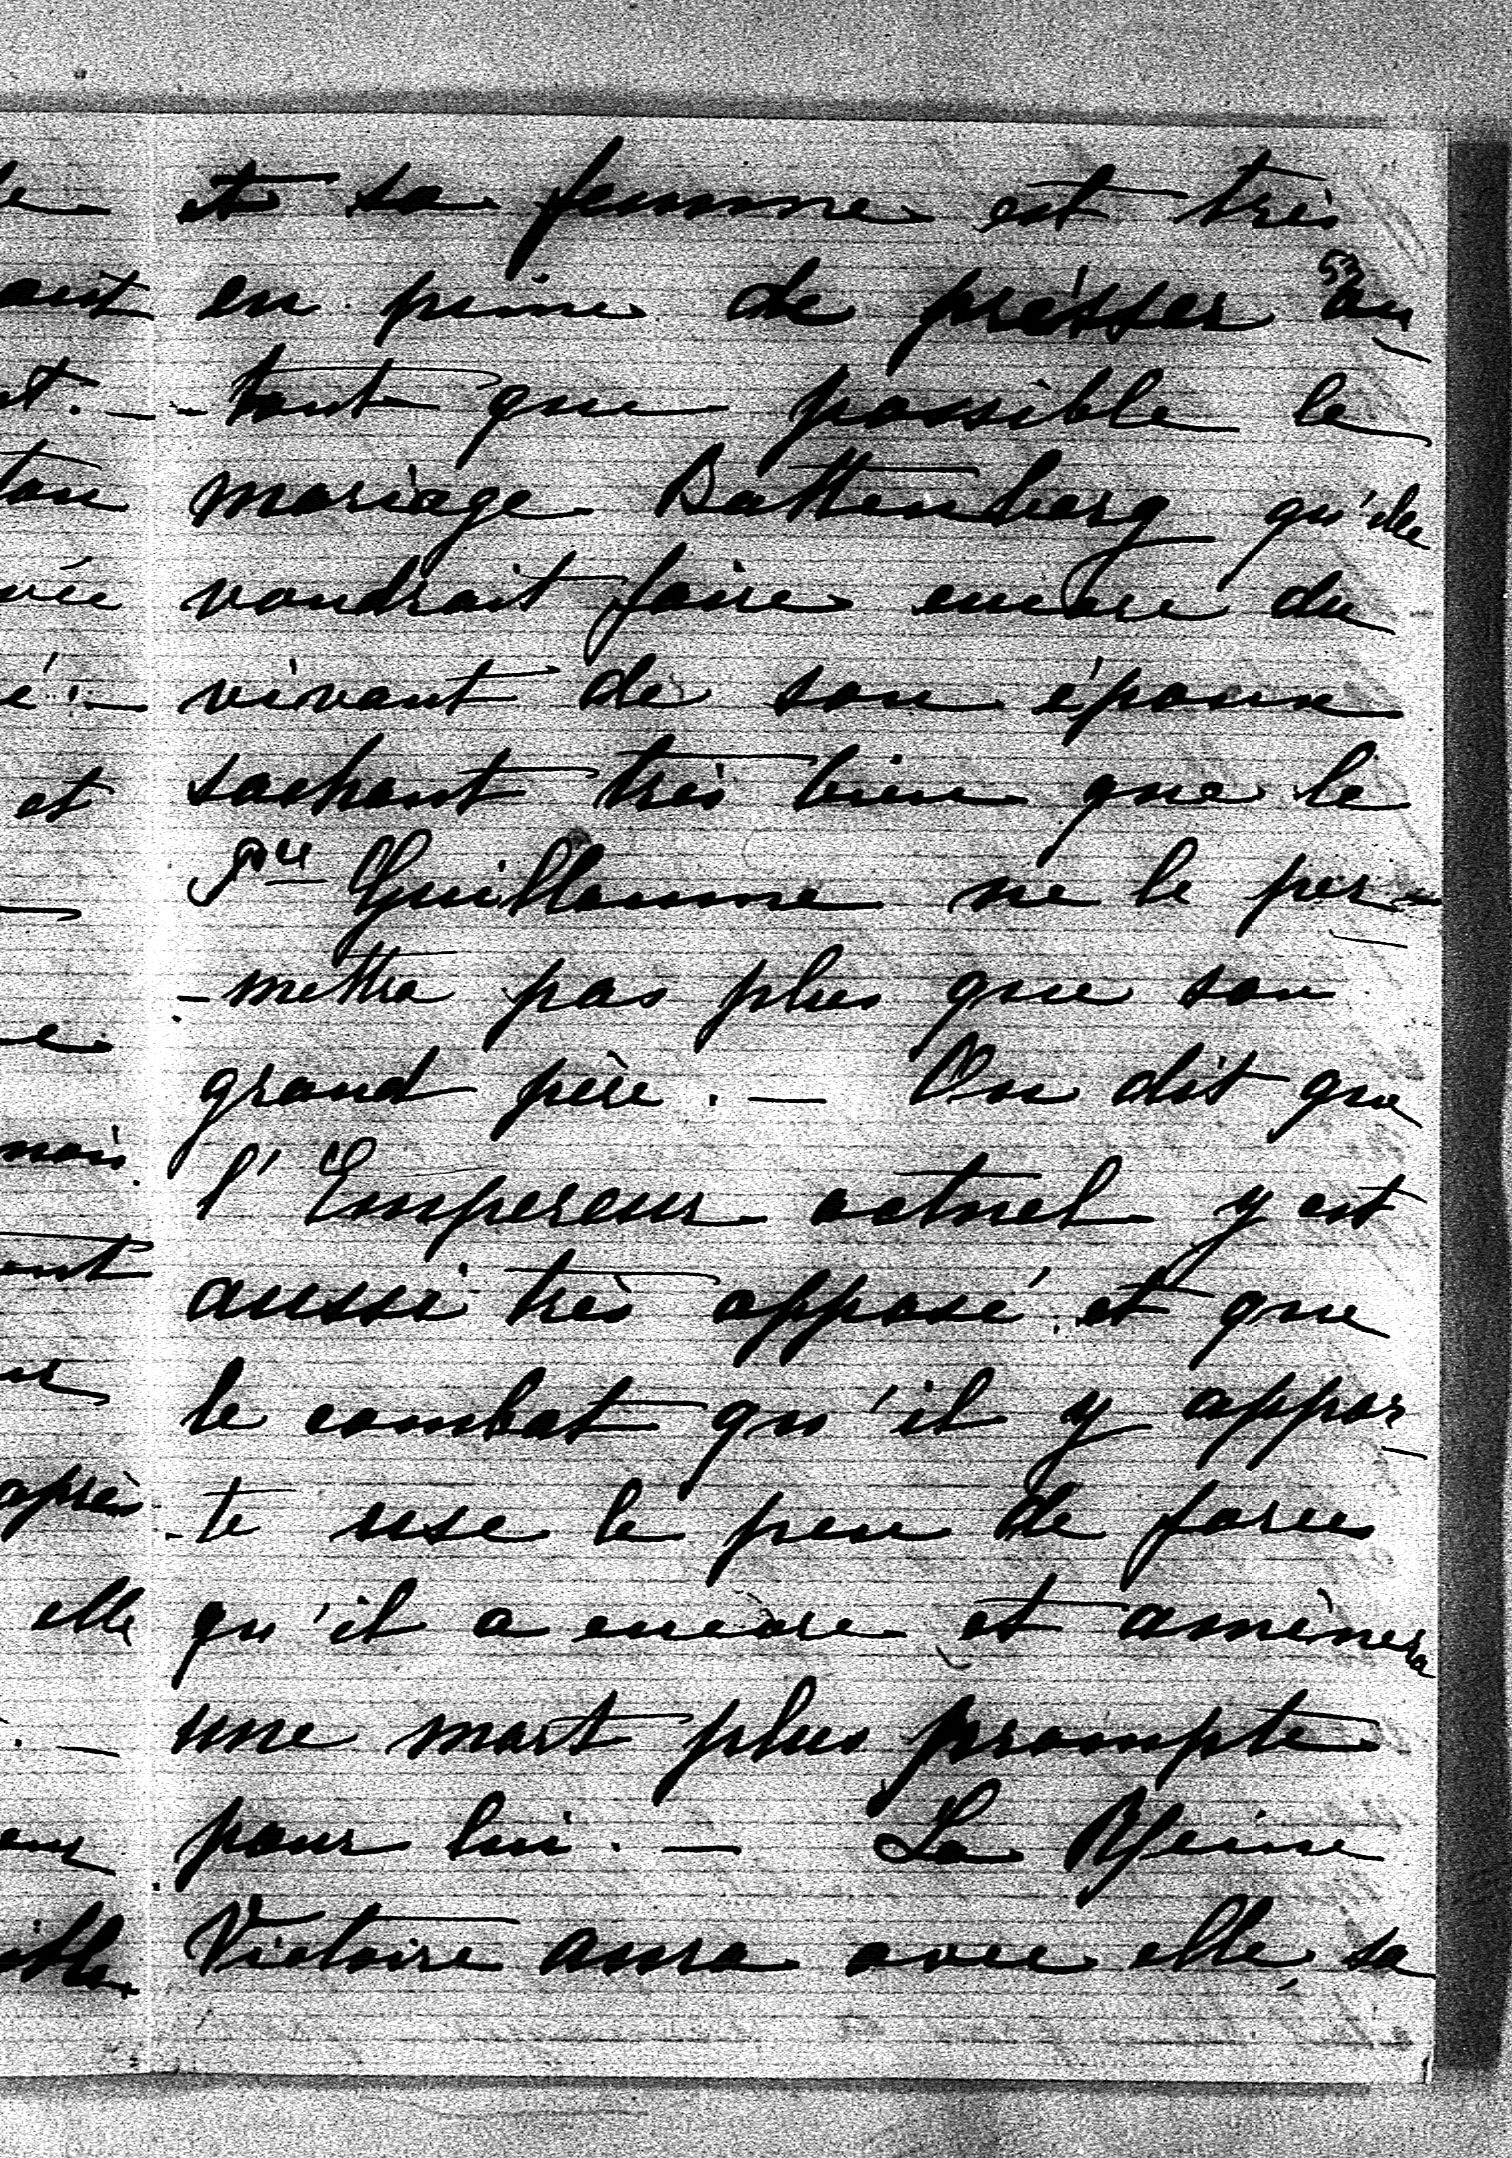 et sa femme est très
en peine de presser au
-tant que possible le
mariage Battenberg qu'elle
voudrait faire encore du
vivant de son époux
sachant très bien que le
Pce Guillaume ne le per-
-mettra pas plus que son
grand père. — On dit que
l'Empereur actuel y est
aussi très opposé et que
le combat qu'il y appor
-te use le peu de forces
qu'il a encore et amènera
une mort plus prompte
pour lui. — La Reine
Victoire aura avec elle, sa